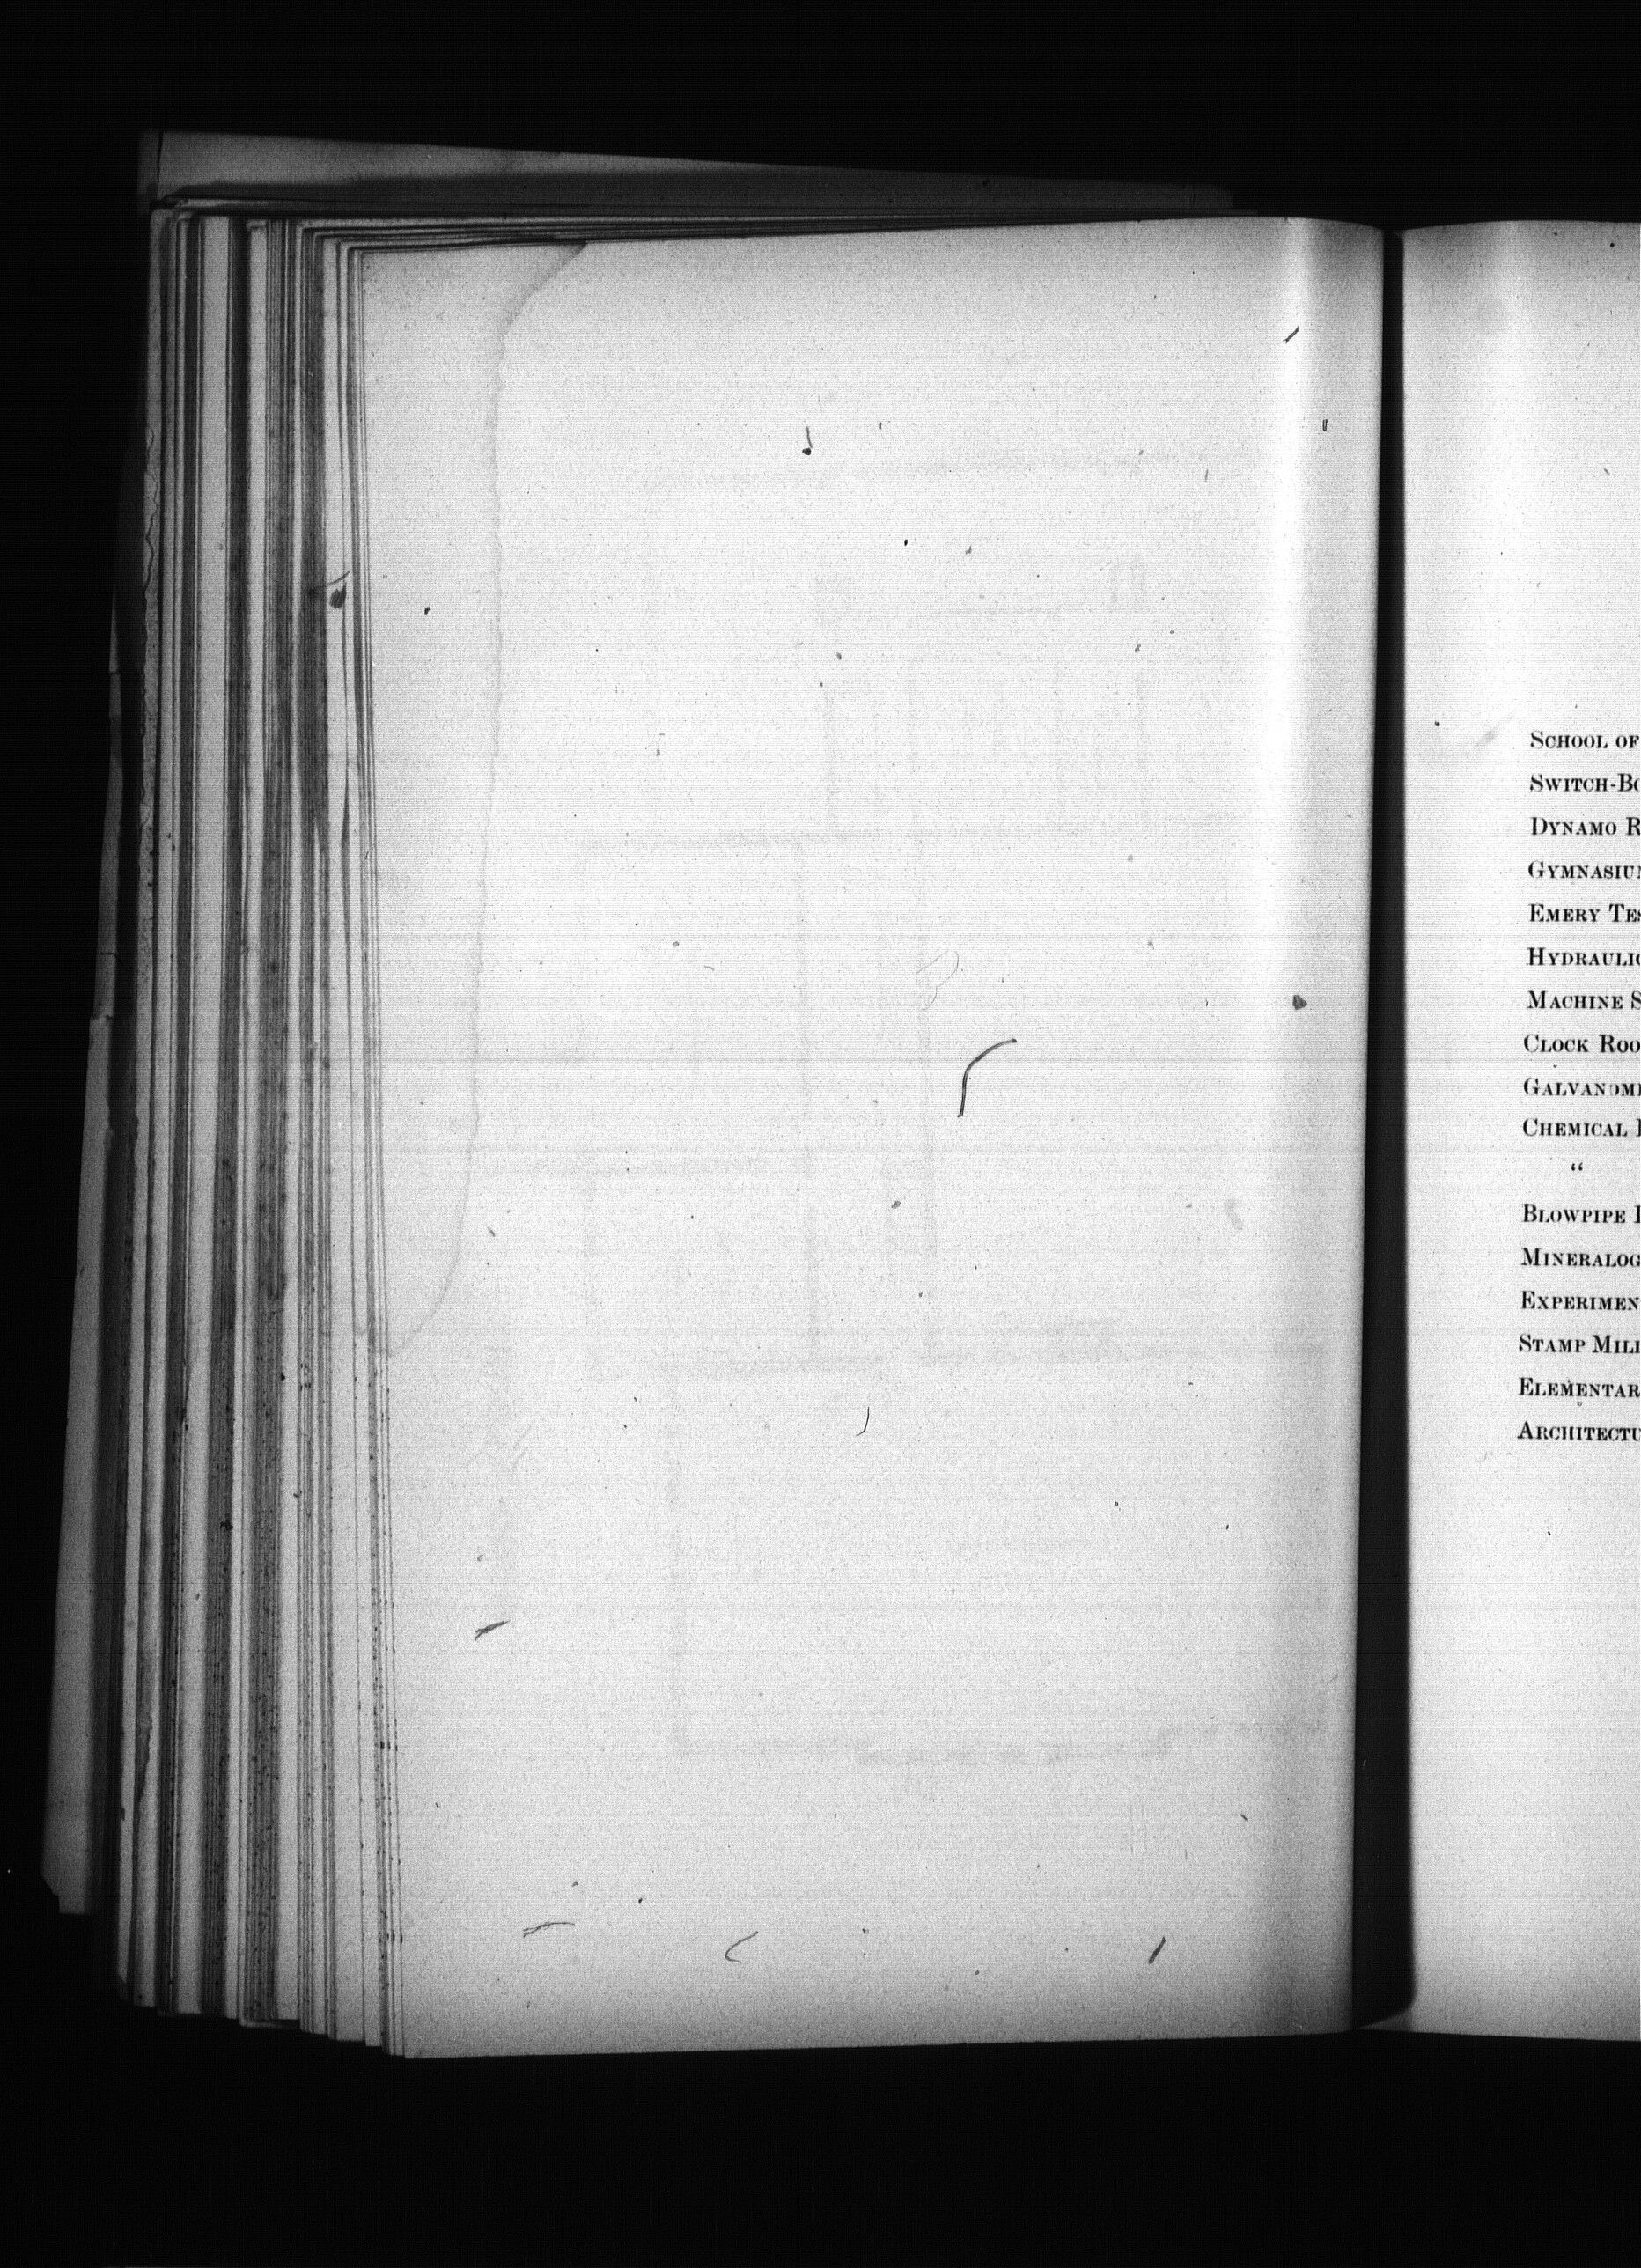 SCHOOL OF
SWITCH-BO
DYNAMO R
GYMNASIUM
EMERY TES
HYDRAULIC
MACHINE S
CLOCK ROO
GALVANOME
CHEMICAL
"
BLOWPIPE
MINERALOG
EXPERIMEN
STAMP MILL
ELEMENTAR
ARCHITECTU